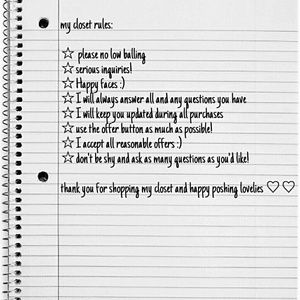 my closet rules:
☆ please no low balling
☆ serious inquiries!
☆ Happy faces :)
☆ I will always answer all and any questions you have
☆ I will keep you updated during all purchases
☆ use the offer button as much as possible!
☆ I accept all reasonable offers :)
☆ don't be shy and ask as many questions as you'd like!
thank you for shopping my closet and happy poshing lovelies ♡ ♡